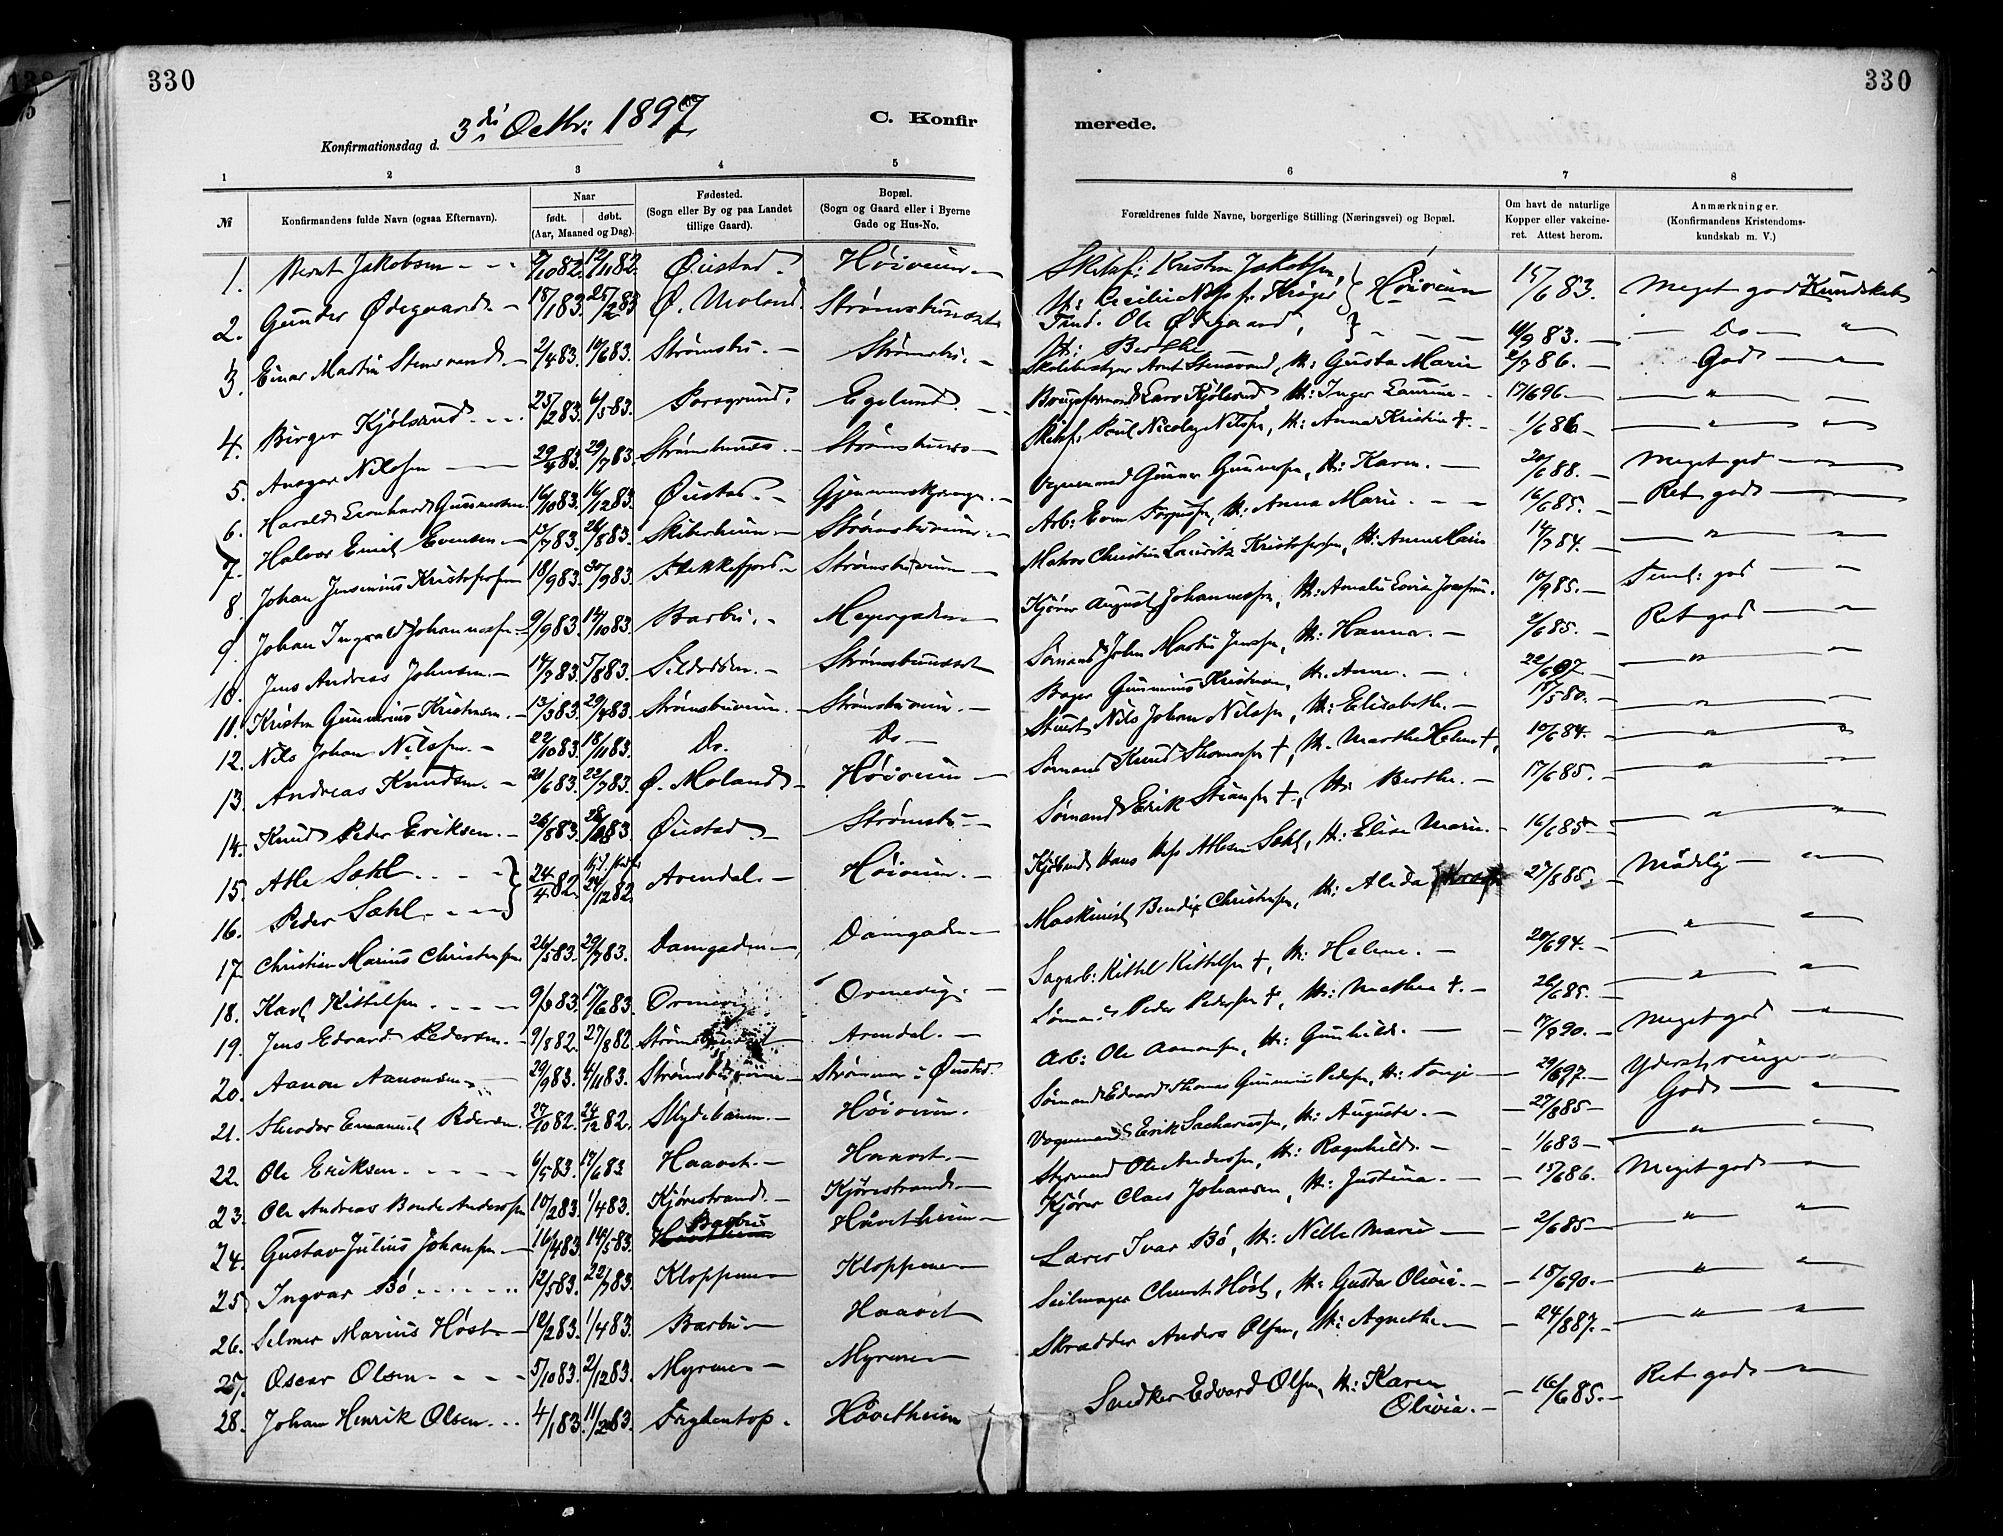 330
Konfirmationsdag d. 3die Octbr: 1897
C. Konfir
1 2 3 4 5
№ Konfirmandens fulde Navn (ogsaa Efternavn). Naar født. døbt. (Aar, Maaned og Dag). Fødested. (Sogn eller By og paa Landet tillige Gaard). Bopæl. (Sogn og Gaard eller i Byerne Gade og Hus-No.
1. Bernt Jakobsen 12/11 82. Øiestad. Høiveien
2. Gunder Ødegaard 18/1 83. 25/2 83 Ø. Moland. Strømsbuaaset
3. Einar Martin Stensvand 2/4 83. 10/6 83. Strømsbu. Strømsbu.
4. Birger Kjølsrud 25/2 83. 6/5 83. Porsgrund. Egelund.
5. Ansgar Nilssen 29/4 83. 29/7 83. Strømsbunes. Strømsbunes
6. Harald Leonhard Gunnersen 16/10 83. 16/12 83. Øiestad.
7. Halvor Emil Evensen 13/7 83. 26/8 83. Skiberheien Strømsbuveien.
8. Johan Jensenius Kristofersen 18/9 83. 30/9 83. Flekkefjord Strømsbuveien
9. Johan Ingvald Johannessen 9/9 83. 14/10 83. Barbu. Meyergaden
10. Jens Andreas Johnsen 14/7 83. 5/8 83. Sildodden. Strømsbuaaset
11. Kristen Gunnerius Kristensen. 13/3 83. 29/4 83. Strømsbuveien. Strømsbuveien.
12. Nils Johan Nilssen. 22/10 83. 18/11 83. Do. Do
13. Andreas Knudsen. 21/6 83. 22/7 83. Ø. Moland Høiveien
14. Knud Peder Eriksen. 26/8 83. 28/10 83 Øiestad. Strømsbu
15. Atle Sæhl 24/4 82. 24/12 82. Arendal. Høiveien.
16. Peder Sæhl
17. Christian Marius Christensen 26/5 83. 29/7 83. Damgaden Damgaden
18. Karl Kittelsen 9/3 83. 17/6 83. Ormevig Ormevig.
19. Jens Edvard Pedersen. 9/8 82. 27/8 82 Strømsbuaaset Arendal.
20. Aanon Aanonsen 29/9 83. 4/11 83. Strømsbuveien Strømmen i Øiestad.
21. Theodor Emanuel Pedersen 27/10 82. 24/12 82. Skydebanen. Høiveien.
22. Ole Eriksen. 6/5 83. 17/6 83 Haavet. Haavet.
23. Ole Andreas Bende Anderssen 10/2 83. 1/4 83. Kjørestrand. Kjørestrand.
24. Gustav Julius Johansen 16/4 83. 14/5 83. Barbu Håvetheien
25 Ingvar Bö 12/5 83. 22/7 83. Kloppene Kloppene
26. Selmer Marius Høst 12/2 83. 1/4 83. Barbu Haavet
27. Oscar Olsen. 5/10 83. 2/12 83. Myrene Myrene
28. Johan Henrik Olsen. 4/1 83. 11/2 83. Fryhentop. Håvetheien
330
merede.
6 7 8
Forældrenes fulde Navne, borgerlige Stilling (Næringsvei) og Bopæl. Om havt de naturlige Kopper eller vakcineret. Attest herom. Anmærkninger. (Konfirmandens Kristendomskundskab m. V.)
Skibsf: Kristen Jakobsen, H: Cecilie Høiveien 15/6 83. Meget god Kundskab
Ole Ødegaard, H: Berthe 83. Do "
Arnt Stensvand, H: Gusta Marie 86. God
Lars Kjølsrud H: Inger Laurine 17/6 96. "
Skibsf. Poul Nicolay Nilssen, H: Anna Kristin †. 1/6 86. "
Gunner Gunnersen, H: Karen. 20/6 88. Meget god "
Arb: Even H: Anna Marie. 16/6 85. Ret god "
Matros Christian Lauritz Kristofersen, H: Anne Marie 14/7 84. "
Kjører August Johannessen, H: Amalie Lovise Josefine. 10/9 85. Teml: god "
Sømand John Martin Jensen, H: Hanna. 2/6 85. Ret god "
Bager Gunnerius Kristensen, H. Anne. 22/6 97. "
Stuert Nils Johan Nilssen, H: Elisabeth. 17/5 80. "
Sømand Knud Thomassen †, H. Marthe Helene †, 10/6 84. "
Sømand Erik †, H: Berthe. 17/6 85. "
Hans Atlesen Sæhl, H: Elise Marie. 16/6 85 "
Maskinist Bendix Christensen, H: Alida 27/8 85. Mådelig "
Sagarb: Kittel Kittelsen †, H: Helene. 20/6 94. "
Peder Pedersen †, H: Mathea †. 26/6 85. "
Arb: Ole Aanonsen, H: Gunhild. 17/8 90. Meget god "
Sømand Edvard Thomas Gunnerius Pedersen, H: Tonje 29/6 97. Yderst ringe "
Vognmand Erik Sachariassen, H: Auguste. 27/8 85 God "
Styrmand Ole Anderssen, H: Ragnhild. 1/6 83 "
Kjører Claes Johansen, H: Justina. 15/6 86. Meget god "
Lærer Ivar Bö, H: Nelle Marie 2/6 85 " "
Seilmager Høst, H: Gusta Olivie. 18/6 90. " "
Skrædder Anders Olsen, H: Agnethe 24/8 87. " "
Snedker Edvard Olsen, H: Karen Olivia. 16/6 85. Ret god "